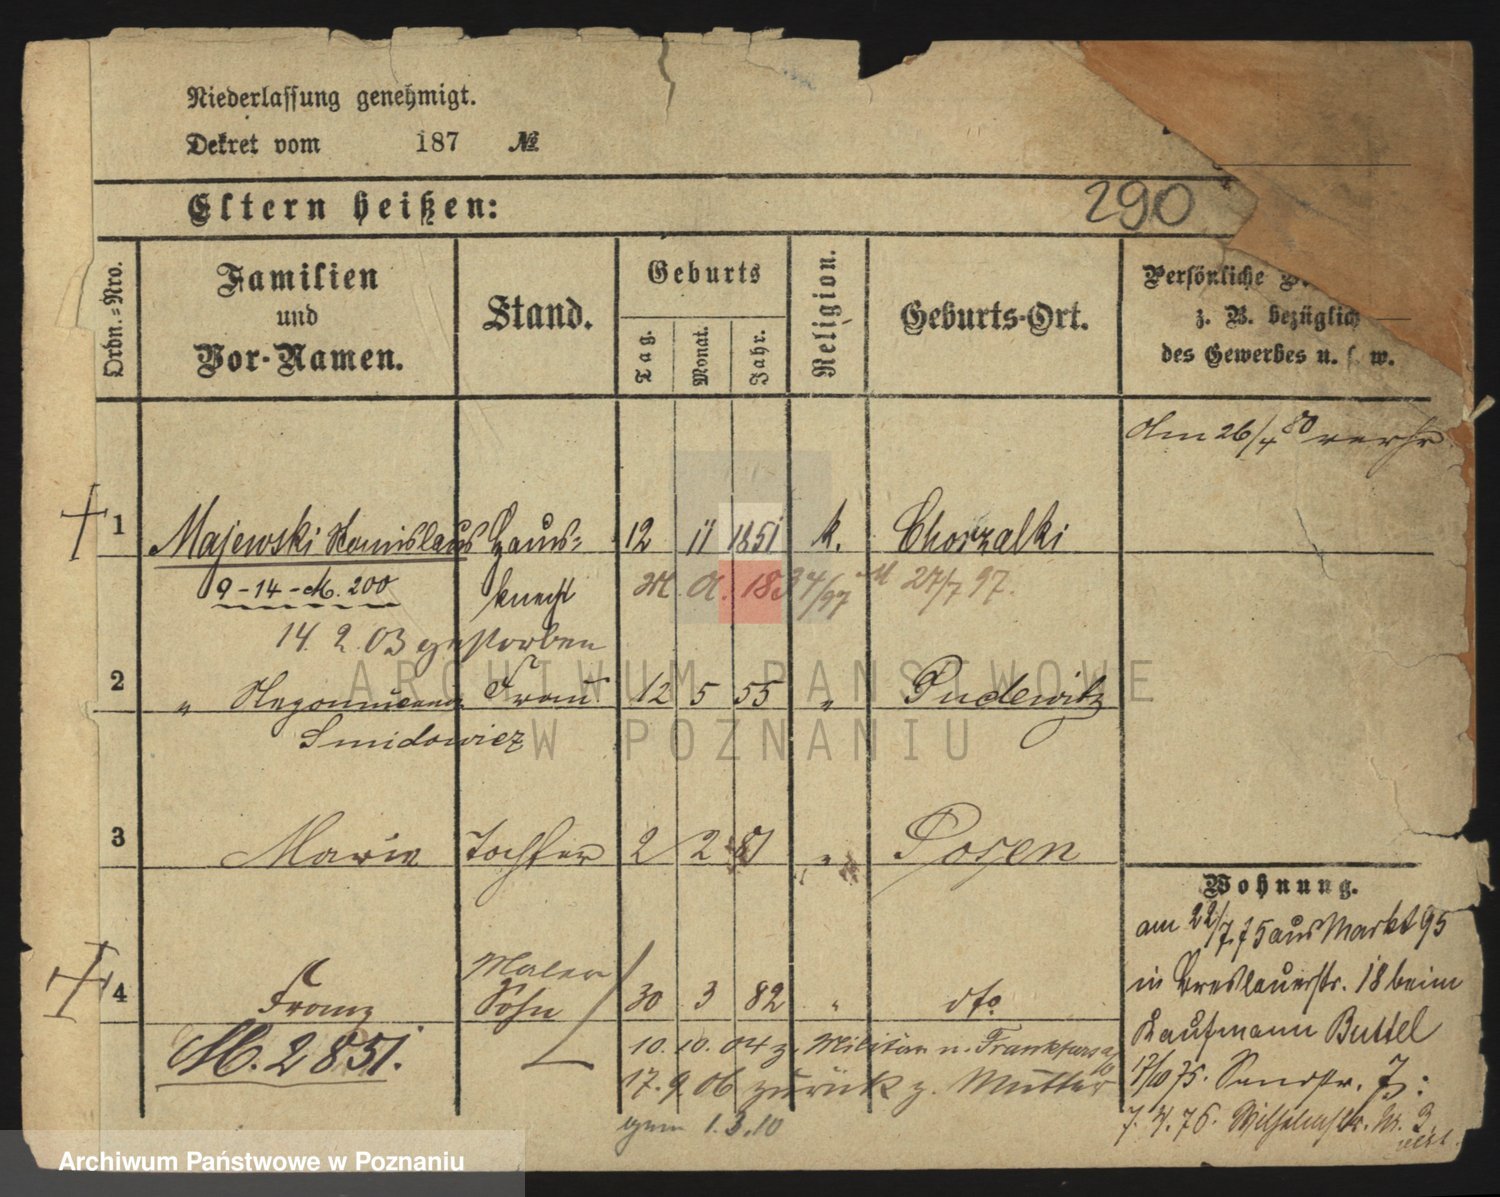 Niederlassung genehmigt.
Dekret vom 187 №
Eltern heißen:
290
Ordn.-Nro.
Familien
und
Vor-Namen.
Stand.
Geburts
Tag.
Monat.
Jahr.
Religion.
Geburts-Ort.
Persönliche
z. B. bezüglich
des Gewerbes u. s. w.
am 26/4 80 verh.
1 Majewski Stanislaus Haus- 12 11 1851 k. Chorzalki
9-14-M. 200 knecht M. A. 1834/97 M 27/7 97.
14. 2. 03 gestorben
2 " Frau 12 5 55 " Pudewitz
Smidowicz
3 Maria Tochter 2 2 81 " Posen
Maler
4 Franz Sohn 30 3 82 " dto
M. 2851.
10. 10. 04 z. Militär n. Frankfurt a/O
17. 9. 06 zurück z. Mutter
1. 3. 10
Wohnung.
am 22/7 75 aus Markt 95
in Breslauerstr. 18 beim
Kaufmann Buttel
17/10 75. Sandstr.
7. 4. 76. Wilhelmstr. Nr. 3
ARCHIWUM PAŃSTWOWE
W POZNANIU
Archiwum Państwowe w Poznaniu